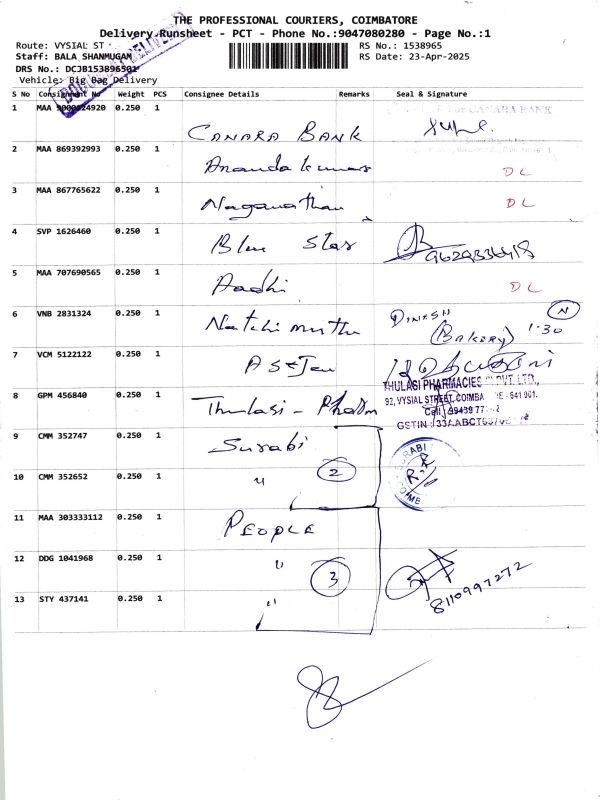 THE PROFESSIONAL COURIERS, COIMBATORE
Delivery Runsheet - PCT - Phone No.:9047080280 - Page No.:1
Route: VYSIAL ST
RS No.: 1538965
Staff: BALA SHANMUGAM
RS Date: 23-Apr-2025
DRS No.: DCJB153896501
Vehicle: Big Bag Delivery
S No Consignment No Weight PCS Consignee Details Remarks Seal & Signature
1 MAA 9000824920 0.250 1
CANARA BANK
CANARA BANK
2 MAA 869392993 0.250 1
Ananda kumar DL
3 MAA 867765622 0.250 1
Naganathan DL
4 SVP 1626460 0.250 1
Blue Star
5 MAA 707690565 0.250 1
Aadhi DL
6 VNB 2831324 0.250 1
Natchimuthu DINESH (Bakery) N 1.30
7 VCM 5122122 0.250 1
8 GPM 456840 0.250 1
Thulasi - Pharm
THULASI PHARMACIES PVT. LTD.,
92, VYSIAL STREET, COIMBA RE - 641 001.
Cell 99439 77
GSTIN : 33AABCT
9 CMM 352747 0.250 1
Surabi
SURABI
COIMB
10 CMM 352652 0.250 1
" 2
11 MAA 303333112 0.250 1
PEOPLE
12 DDG 1041968 0.250 1
" 3
8110997272
13 STY 437141 0.250 1
"